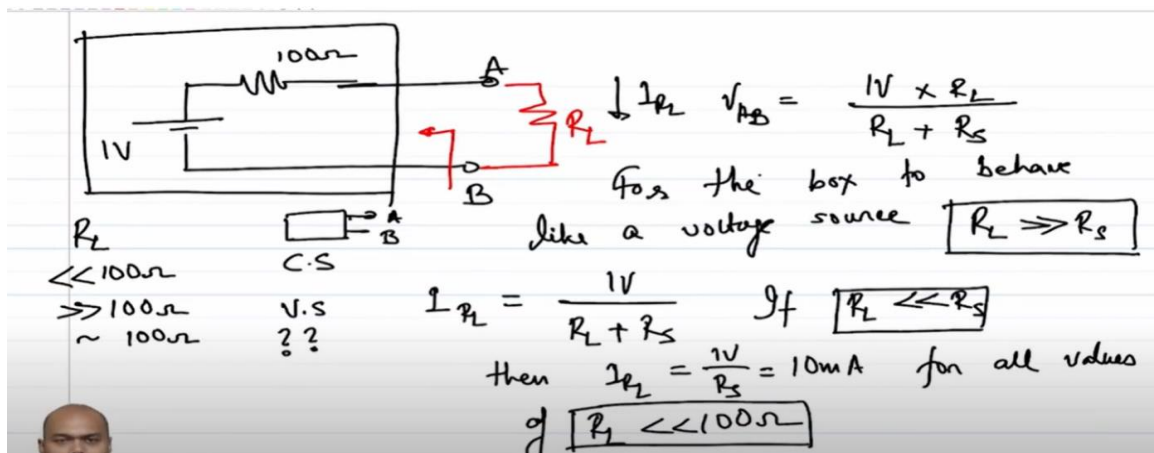 100Ω
1V
A
R_L
B
↓ I_RL V_AB = 1V x R_L / R_L + R_S
For the box to behave
like a voltage source R_L >> R_S
A
B
R_L C.S
<< 100Ω
>> 100Ω V.S
~ 100Ω ??
I_RL = 1V / R_L + R_S If R_L << R_S
then I_RL = 1V / R_S = 10mA for all values
of R_L << 100Ω